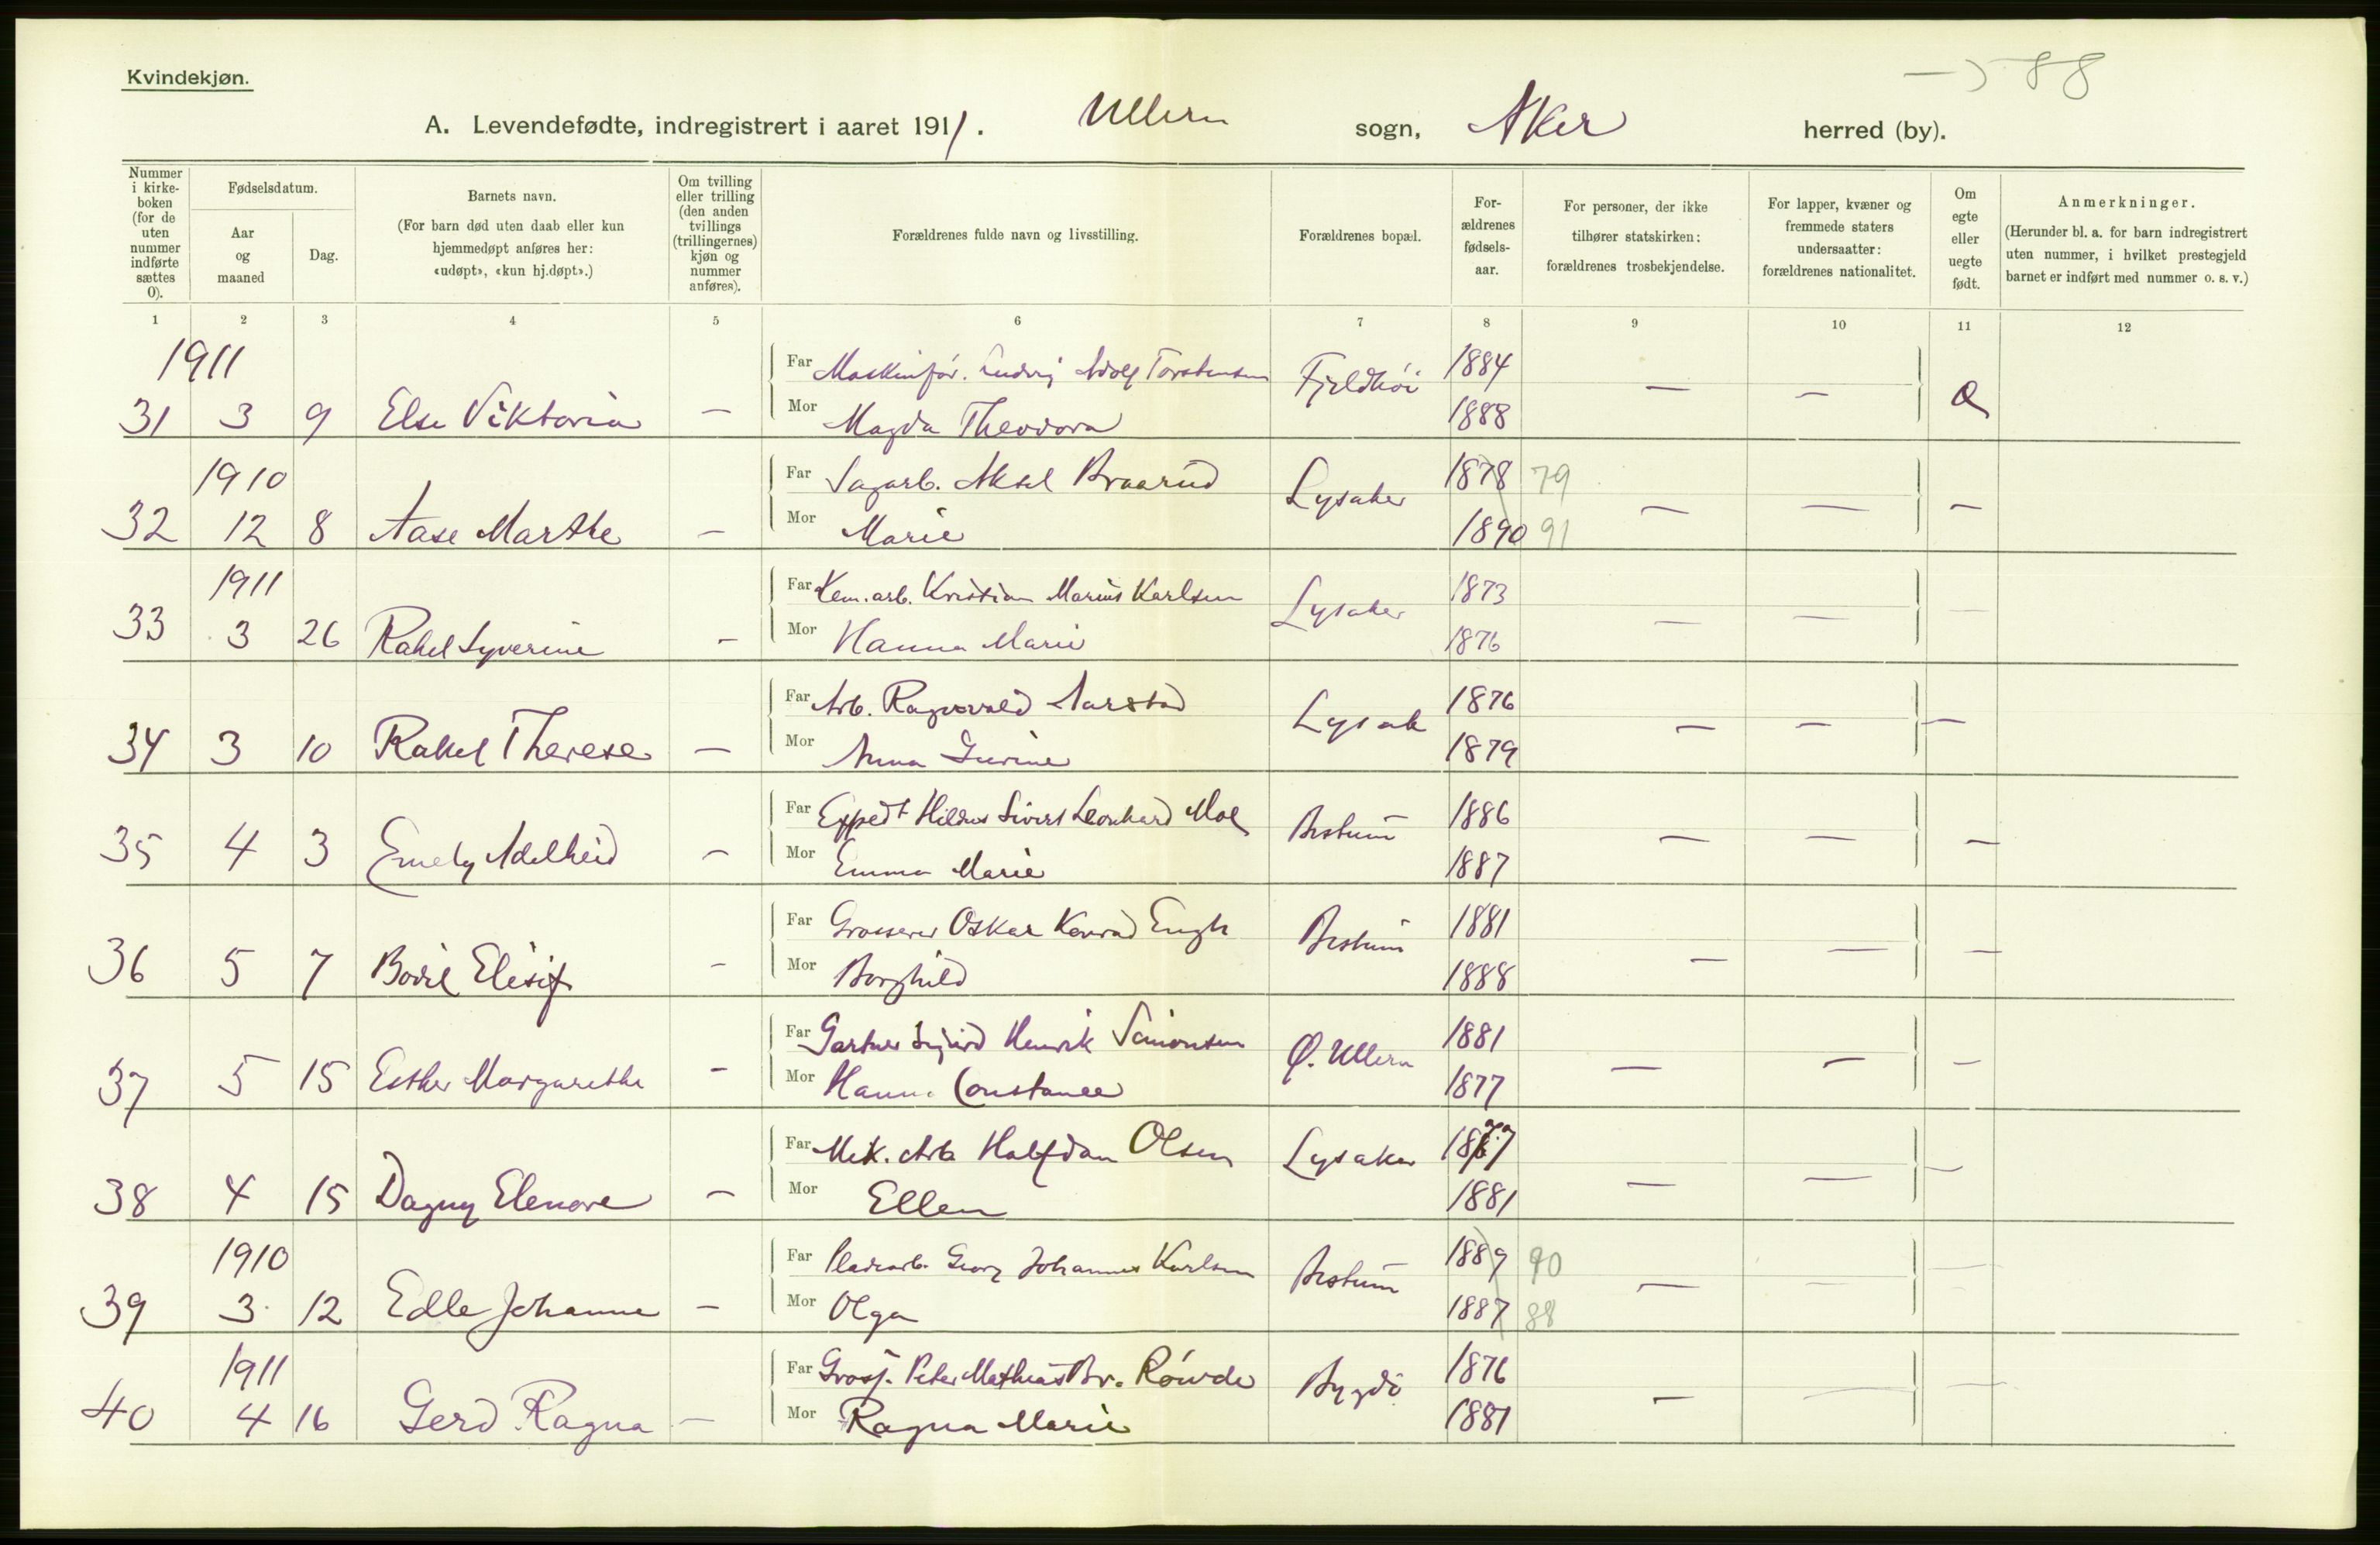 Kvindekjøn.
88
A. Levendefødte, indregistrert i aaret 1911. Ullern sogn, Aker herred (by).
Nummer i kirkeboken (for de uten nummer indførte sættes 0). | Fødselsdatum. Aar og maaned | Dag. | Barnets navn. (For barn død uten daab eller kun hjemmedøpt anføres her: «udøpt», «kun hj.døpt».) | Om tvilling eller trilling (den anden tvillings (trillingernes) kjøn og nummer anføres). | Forældrenes fulde navn og livsstilling. | Forældrenes bopæl. | Forældrenes fødselsaar. | For personer, der ikke tilhører statskirken: forældrenes trosbekjendelse. | For lapper, kvæner og fremmede staters undersaatter: forældrenes nationalitet. | Om egte eller uegte født. | Anmerkninger. (Herunder bl. a. for barn indregistrert uten nummer, i hvilket prestegjeld barnet er indført med nummer o. s. v.)
1 2 3 4 5 6 7 8 9 10 11 12
1911 Far Maskinfør. Ludvig Adolf Torstensen Fjeldhöi 1884 — —
31 3 9 Else Viktoria — Mor Magda Theodora 1888
1910 Far Sagarb. Aksel Braarud Lysaker 1878 79 — — —
32 12 8 Aase Marthe — Mor Marie 1890 91
1911 Far Kem. arb. Kristian Marius Karlsen Lysaker 1873 — — —
33 3 26 Rakel Syverine — Mor Hanna Marie 1876
Far Arb. Ragnvald Aarstad Lysak 1876 — — —
34 3 10 Rakel Therese — Mor Anna Gurine 1879
Far Expedt Sivert Leonhard Moe Bestum 1886 — — —
35 4 3 Emely Adelheid — Mor Emma Marie 1887
Far Grosserer Oskar Konrad Engh Bestum 1881 — — —
36 5 7 Bodil Elisif — Mor Borghild 1888
Far Gartner Sigurd Henrik Simonsen Ø. Ullern 1881 — — —
37 5 15 Esther Margarethe — Mor Hanna Constance 1877
Far Mek. Arb Halfdan Olsen Lysaker 1877 — — —
38 4 15 Dagny Elenore — Mor Ellen 1881
1910 Far Georg Johannes Karlsen Bestum 1889 90 — — —
39 3 12 Edle Johanne — Mor Olga 1887 88
1911 Far Gross. Peter Mathias Br. Röwde Bygdö 1876 — — —
40 4 16 Gerd Ragna — Mor Ragna Marie 1881